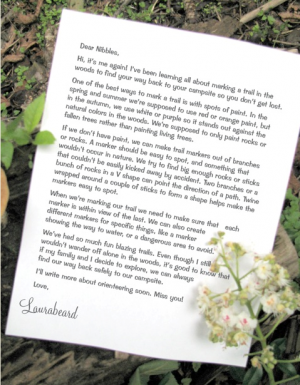 Dear Nibbles,
Hi, it's me again! I've been learning all about marking a trail in the
woods to find your way back to your campsite so you don't get lost.
One of the best ways to mark a trail is with spots of paint. In the
spring and summer we're supposed to use red or orange paint, but
in the autumn, we use white or purple so it stands out against the
natural colors in the woods. We're supposed to only paint rocks or
fallen trees rather than painting living trees.
If we don't have paint, we can make trail markers out of branches
or rocks. A marker should be easy to spot, and something that
wouldn't occur in nature. We try to find big enough rocks or sticks
that couldn't be easily kicked away by accident. Two branches or a
bunch of rocks in a V shape can point the direction of a path. Twine
wrapped around a couple of sticks to form a shape helps make the
markers easy to spot.
When we're marking our trail we need to make sure that each
marker is within view of the last. We can also create
different markers for specific things, like a marker
showing the way to water, or a dangerous area to avoid.
We've had so much fun blazing trails. Even though I still
wouldn't wander off alone in the woods, it's good to know that
if my family and I decide to explore, we can always
find our way back safely to our campsite.
I'll write more about orienteering soon. Miss you!
Love,
Laurabeard